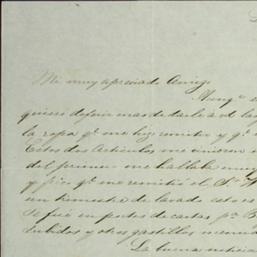 Mi muy apreciado Amigo
Aunqe
quiero dejar mas de darle a Vd las
la ropa qe me hizo remitir y qe
Estos dos Articulos me
del primero me hallaba muy
y pr qe me remitio el Sr
un remedio de lavado esto es
se fué en portes de cartas pa B
debidos y otros gastillos menu
La buena noticia